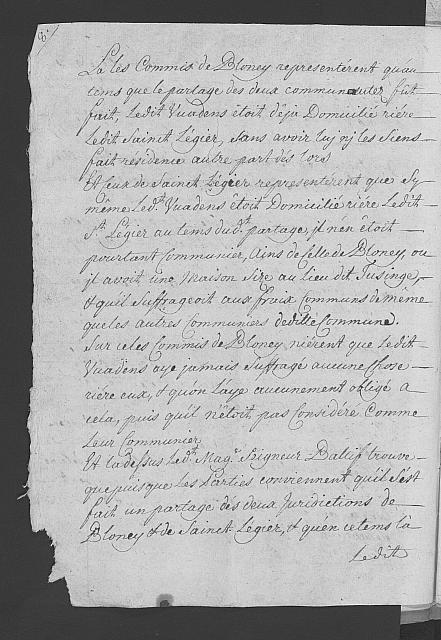 8.
La les Commis de Bloney representerent qu'au
tems que le partage des deux communautez fût
fait, Ledit Vuadens étoit déja Domicilié rière
Ledit Sainct Légier, sans avoir luy nj les Siens
fait residence autre part dés lors
Et ceux de Sainct Légier representerent que Sy
même Led.t Vuadens étoit Domicilié rière Ledit
S.t Légier au tems dud.t partage, il n'en êtoit
pourtant Communier, Ains de Celle de Bloney, ou
il avoit une Maison Size au lieu dit Tusinge,
& quil Suffrageoit aux fraix Communs de meme
que les autres Communiers de ditte Commune.
Sur ce les Commis de Bloney, niérent que Ledit
Vuadens aye jamais Suffragé aucune Chose
riére eux, & qu'on l'aye aucunement obligé a
cela, puis quil n'êtoit pas Considéré Comme
Leur Communier
Et la dessus Led.t Mag.e Seigneur Ballif trouve
que puisque Les Parties conviennent quil s'est
fait un partage dès deux Juridictions de
Bloney & de Sainct Légier, & qu'en ce tems là
Ledit